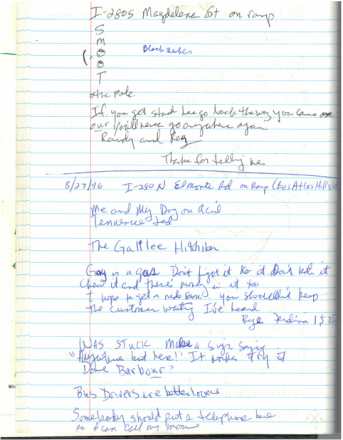 I-280S Magdalena St on ramp
S
M
O
O
T
on a Pole
If you get stuck here go back the way you came
or you'll never go anywhere again
Randy and
Thanks for telling me
8/27/96 I-280 N El Monte Rd on Ramp (Los Altos Hills)
Me and My Dog on Acid
Tennessee Jed
The Galilee Hitchhiker
Don't fight it
Chew it and there's more in it too
I hope to get a ride soon you shouldn't keep
the Customer waiting I've heard
Bye
WAS STUCK Make a sign saying
"Anywhere but here!" It works try it
Dave Barbour?
Bus Drivers are better lovers
Somebody should put a telephone here
so I can call my mom